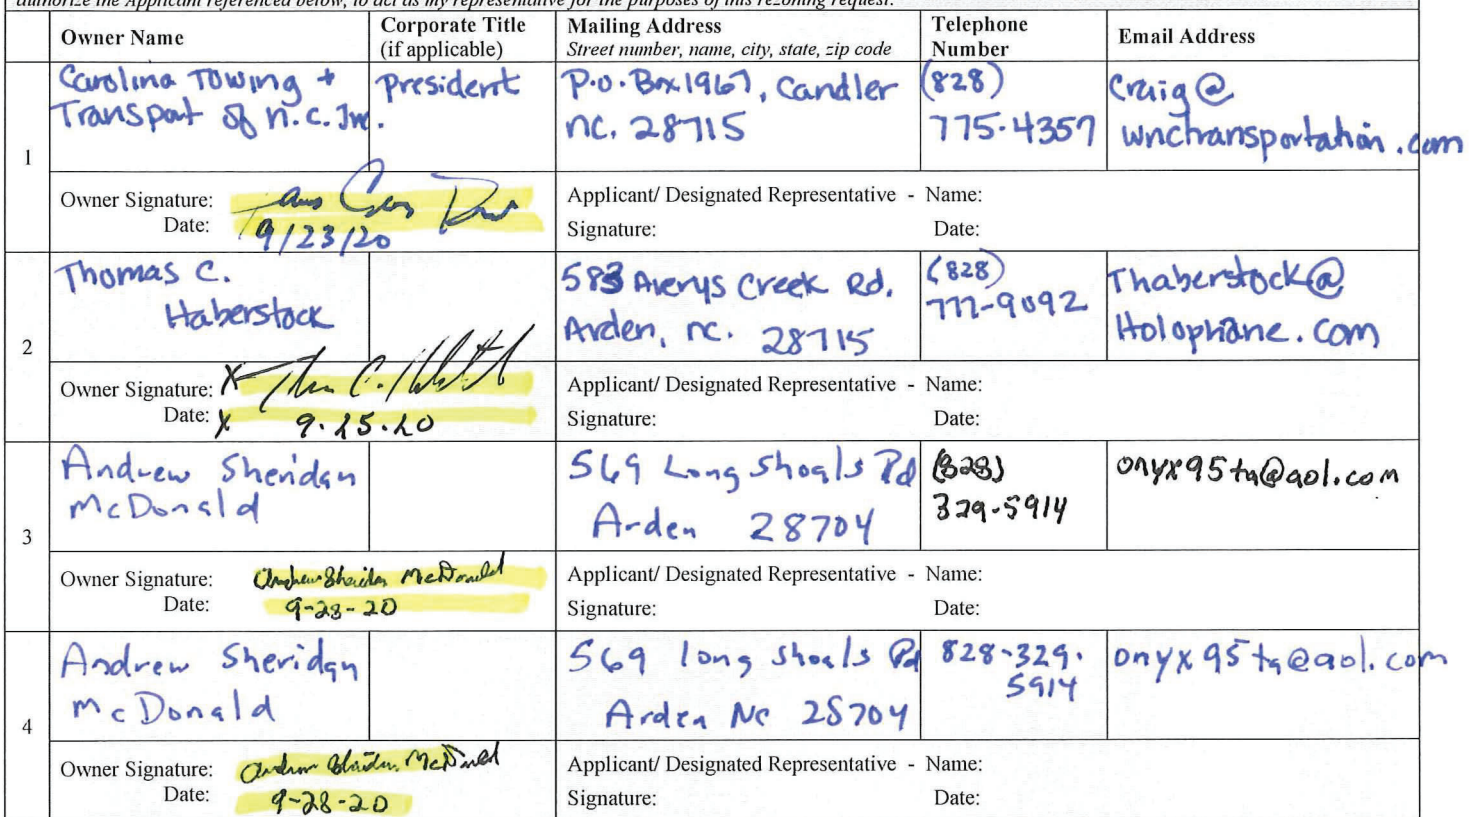 authorize the Applicant referenced below, to act as my representative for the purposes of this rezoning request.
Owner Name
Corporate Title
(if applicable)
Mailing Address
Street number, name, city, state, zip code
Telephone
Number
Email Address
1
Carolina Towing +
Transport of n.c. Inc.
President
P.O. Box 1967, Candler
nc. 28715
(828)
775-4357
Craig@
wnctransportation.com
Owner Signature:
Date: 9/23/20
Applicant/ Designated Representative - Name:
Signature: Date:
2
Thomas C.
Haberstock
583 Averys Creek Rd.
Arden, nc. 28715
(828)
777-9092
Thaberstock@
Holophane.com
Owner Signature: X
Date: X 9.25.20
Applicant/ Designated Representative - Name:
Signature: Date:
3
Andrew Sheridan
McDonald
569 Long Shoals Rd
Arden 28704
(828)
329-5914
onyx95ta@aol.com
Owner Signature: Andrew Sheridan McDonald
Date: 9-28-20
Applicant/ Designated Representative - Name:
Signature: Date:
4
Andrew Sheridan
McDonald
569 long shoals Rd
Arden NC 28704
828-329-
5914
onyx95ta@aol.com
Owner Signature: Andrew Sheridan McDonald
Date: 9-28-20
Applicant/ Designated Representative - Name:
Signature: Date: